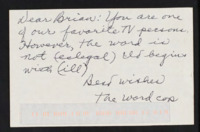 Dear Brian: You are one
of our favorite TV persons.
However, the word is
not (eslegal) It begins
with (ill)
Best wishes
The word cop